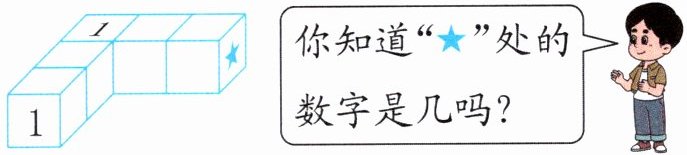 1
1
你知道“★”处的
数字是几吗？